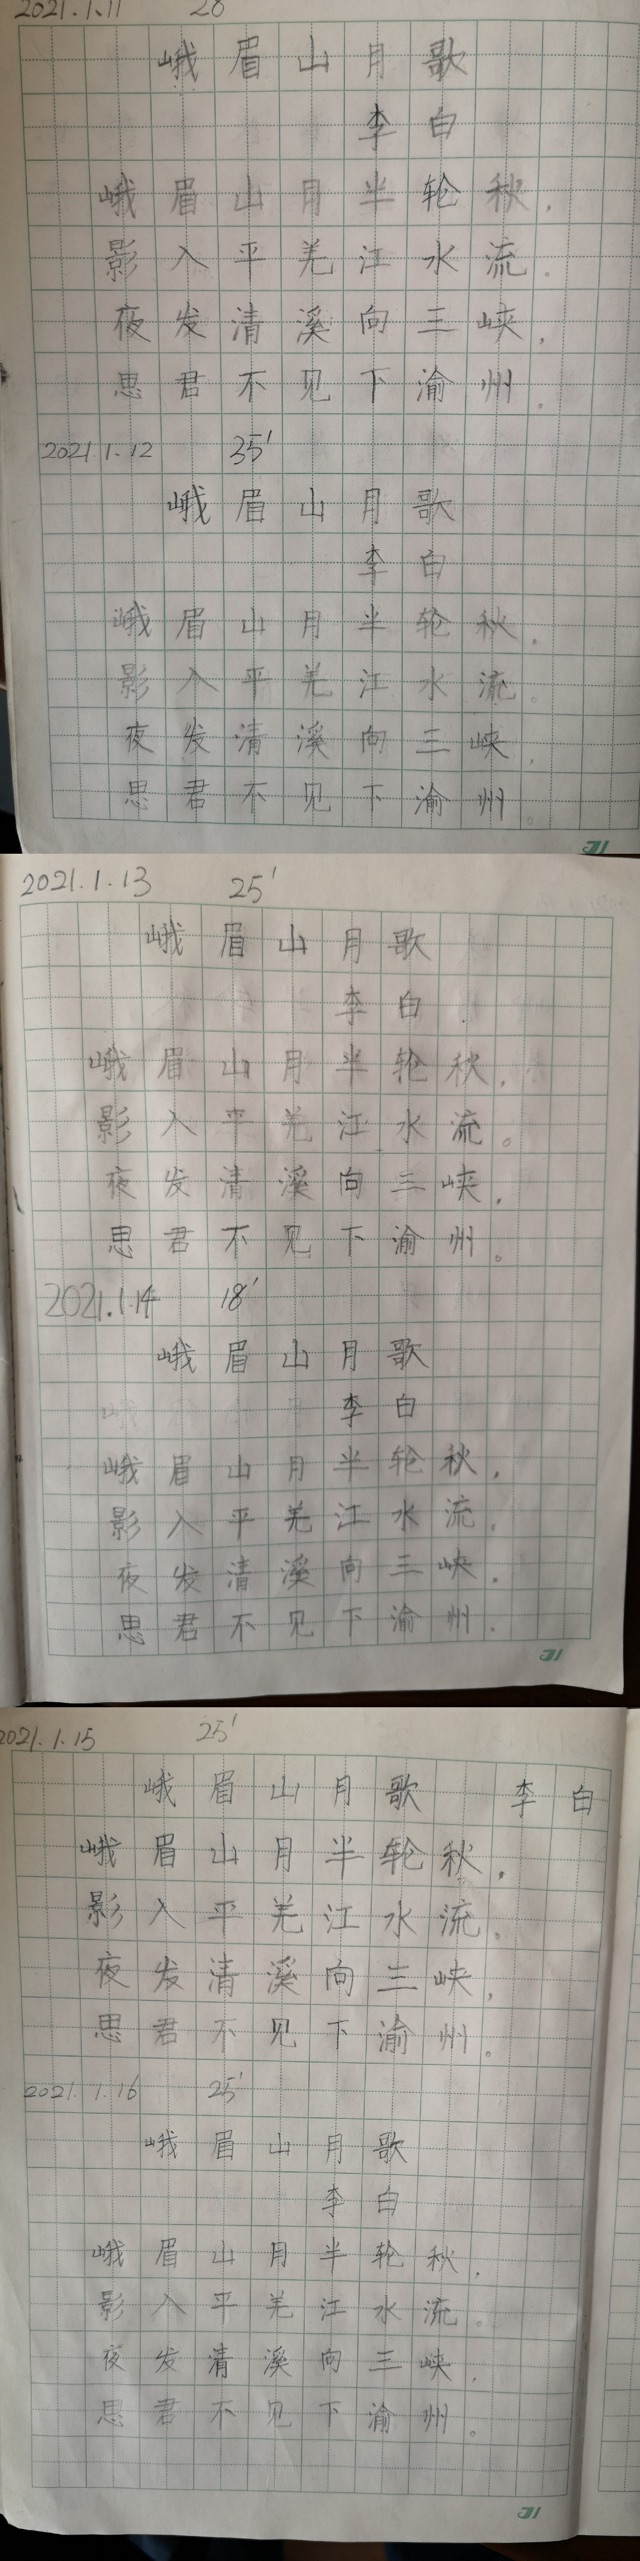 2021.1.11 28
峨眉山月歌
李白
峨眉山月半轮秋,
影入平羌江水流。
夜发清溪向三峡,
思君不见下渝州。
2021.1.12 35'
峨眉山月歌
李白
峨眉山月半轮秋,
影入平羌江水流。
夜发清溪向三峡,
思君不见下渝州。
2021.1.13 25'
峨眉山月歌
李白
峨眉山月半轮秋,
影入平羌江水流。
夜发清溪向三峡,
思君不见下渝州。
2021.1.14 18'
峨眉山月歌
李白
峨眉山月半轮秋,
影入平羌江水流。
夜发清溪向三峡,
思君不见下渝州。
2021.1.15 25'
峨眉山月歌 李白
峨眉山月半轮秋,
影入平羌江水流。
夜发清溪向三峡,
思君不见下渝州。
2021.1.16 25'
峨眉山月歌
李白
峨眉山月半轮秋,
影入平羌江水流。
夜发清溪向三峡,
思君不见下渝州。